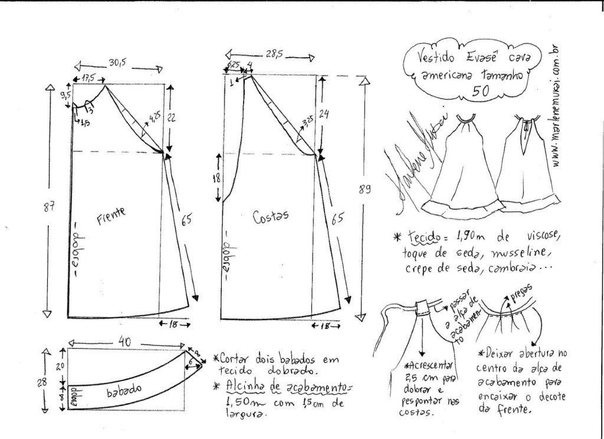 Vestido Evasê cava
americana tamanho
50
www.marlenemukai.com.br
Marlene Mukai
30,5
17,5
9,5
1,5
3
4,25
22
87
65
Frente
-dobra-
18
28,5
4
1
3,25
24
18
89
65
Costas
-dobra-
18
* tecido = 1,90m de viscose,
toque de seda, musseline,
crepe de seda, cambraia...
passar
a alça de
acabamento
*Acrescentar
2,5 cm para
dobrar e
pespontar nas
costas.
preças
*Deixar abertura no
centro da alça de
acabamento para
encaixar o decote
da frente.
40
20
28
8
6
dobra
babado
*Cortar dois babados em
tecido dobrado.
* Alcinha de acabamento=
1,50m com 1,5cm de
largura.